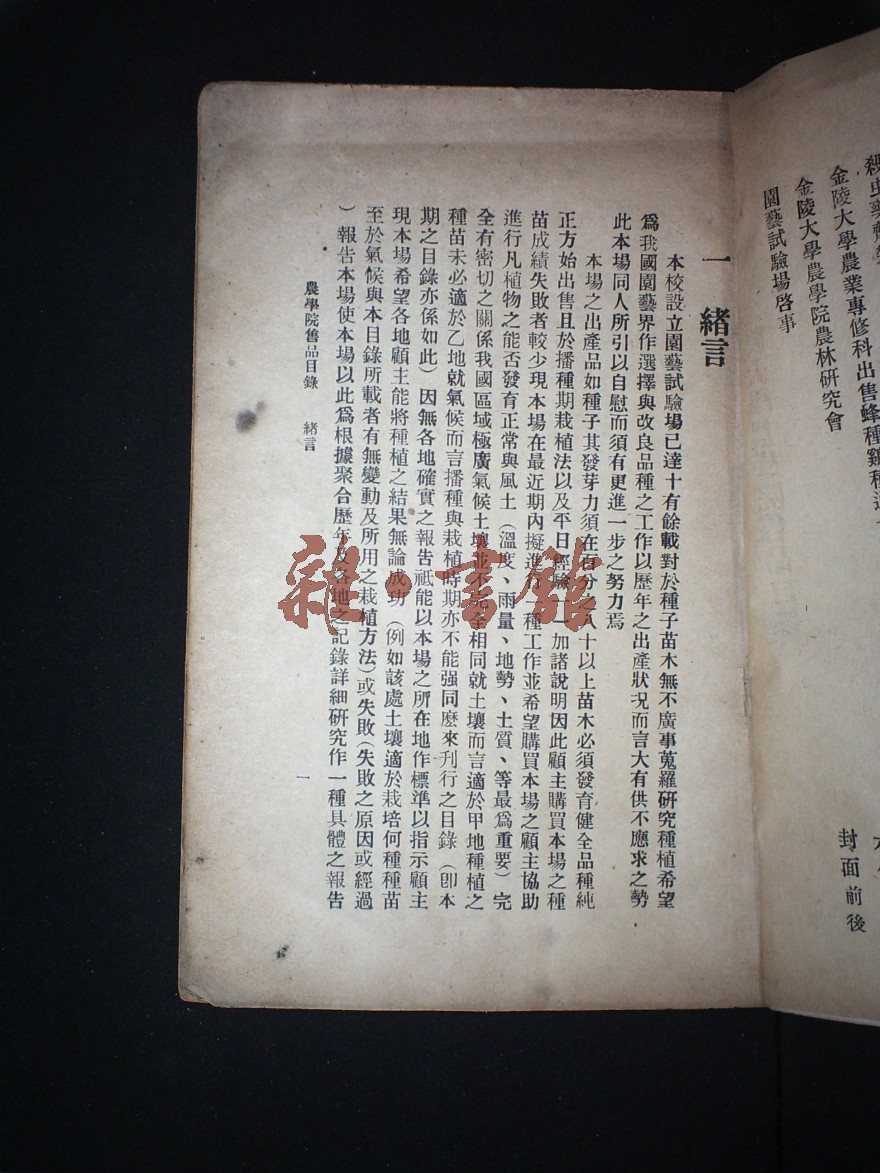 殺虫藥劑
金陵大學農業專修科出售蜂種鷄種
金陵大學農學院農林研究會
園藝試驗場啓事
封面前後
一 緒言
本校設立園藝試驗場已達十有餘載對於種子苗木無不廣事蒐羅硏究種植希望
爲我國園藝界作選擇與改良品種之工作以歷年之出產狀况而言大有供不應求之勢
此本場同人所引以自慰而須有更進一步之努力焉
本場之出產品如種子其發芽力須在百分之八十以上苗木必須發育健全品種純
正方始出售且於播種期栽植法以及平日經驗一加諸說明因此顧主購買本場之種
苗成績失敗者較少現本場在最近期內擬進行一種工作並希望購買本場之顧主協助
進行凡植物之能否發育正常與風土（溫度、雨量、地勢、土質、等最爲重要）完
全有密切之關係我國區域極廣氣候土壤並不完全相同就土壤而言適於甲地種植之
種苗未必適於乙地就氣候而言播種與栽植時期亦不能强同麽來刋行之目錄（卽本
期之目錄亦係如此）因無各地確實之報告祇能以本場之所在地作標準以指示顧主
現本場希望各地顧主能將種植之結果無論成功（例如該處土壤適於栽培何種種苗
至於氣候與本目錄所載者有無變動及所用之栽植方法）或失敗（失敗之原因或經過
）報告本場使本場以此爲根據聚合歷年及各地之記錄詳細硏究作一種具體之報告
農學院售品目錄 緒言
一
雜·書館